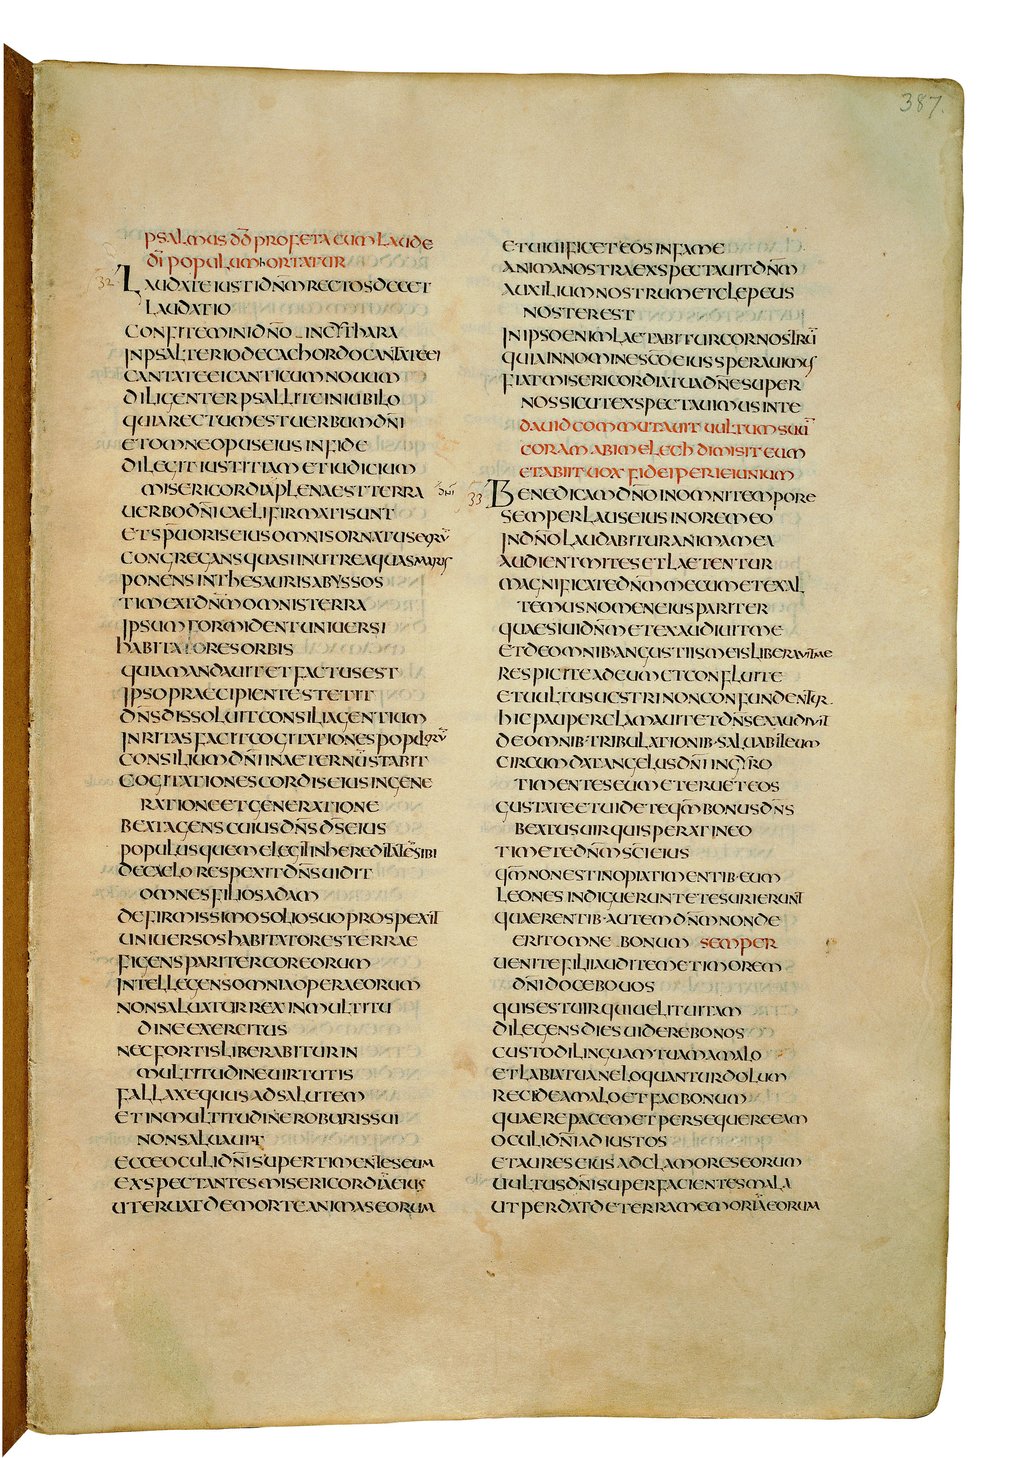 387.
PSALMUS DD PROFETA CUM LAUDE
DI POPULUM hORTATUR
32 LAUDATE IUSTI DNM RECTOS DECET
LAUDATIO
CONFITEMINI DNO IN CYThARA
IN PSALTERIO DECACHORDO CANTATE EI
CANTATE EI CANTICUM NOUUM
DILIGENTER PSALLITE IN IUBILO
QUIA RECTUM EST UERBUM DNI
ET OMNE OPUS EIUS IN FIDE
DILEGIT IUSTITIAM ET IUDICIUM
MISERICORDIA PLENA EST TERRA DNI
UERBO DNI CAELI FIRMATI SUNT
ET SPU ORIS EIUS OMNIS ORNATUS EORU
CONGREGANS QUASI IN UTRE AQUAS MARIS
PONENS IN THESAURIS ABYSSOS
TIMEAT DNM OMNIS TERRA
IPSUM FORMIDENT UNIUERSI
hABITATORES ORBIS
QUIA MANDAUIT ET FACTUS EST
IPSO PRAECIPIENTE STETIT
DNS DISSOLUIT CONSILIA GENTIUM
INRITAS FACIT COGITATIONES POPULORU
CONSILIUM DNI IN AETERNUM STABIT
COGITATIONES CORDIS EIUS IN GENE
RATIONE ET GENERATIONE
BEATA GENS CUIUS DNS DS EIUS
POPULUS QUEM ELEGIT IN hEREDITATE SIBI
DE CAELO RESPEXIT DNS UIDIT
OMNES FILIOS ADAM
DE FIRMISSIMO SOLIO SUO PROSPEXIT
UNIUERSOS hABITATORES TERRAE
FIGENS PARITER COR EORUM
INTELLEGENS OMNIA OPERA EORUM
NON SALUATUR REX IN MULTITU
DINE EXERCITUS
NEC FORTIS LIBERABITUR IN
MULTITUDINE UIRTUTIS
FALLAX EQUUS AD SALUTEM
ET IN MULTITUDINE ROBURIS SUI
NON SALUAUIT
ECCE OCULI DNI SUPER TIMENTES EUM
EXSPECTANTES MISERICORDIA EIUS
UT ERUAT DE MORTE ANIMAS EORUM
ET UIUIFICET EOS IN FAME
ANIMA NOSTRA EXSPECTAUIT DNM
AUXILIUM NOSTRUM ET CLEPEUS
NOSTER EST
IN IPSO ENIM LAETABITUR COR NOSTRU
QUIA IN NOMINE SCO EIUS SPERAUIMUS
FIAT MISERICORDIA TUA DNE SUPER
NOS SICUT EXSPECTAUIMUS IN TE
DAUID COMMUTAUIT UULTUM SUU
CORAM ABIMELECH DIMISIT EUM
ET ABIIT UOX FIDEI PER IEIUNIUM
33 BENEDICAM DNO IN OMNI TEMPORE
SEMPER LAUS EIUS IN ORE MEO
IN DNO LAUDABITUR ANIMA MEA
AUDIENT MITES ET LAETENTUR
MAGNIFICATE DNM MECUM ET EXAL
TEMUS NOMEN EIUS PARITER
QUAESIUI DNM ET EXAUDIUIT ME
ET DE OMNIB ANGUSTIIS MEIS LIBERAUIT ME
RESPICITE AD EUM ET CONFLUITE
ET UULTUS UESTRI NON CONFUNDENTUR
hIC PAUPER CLAMAUIT ET DNS EXAUDIUIT
DE OMNIB TRIBULATIONIB SALUABIT EUM
CIRCUMDAT ANGELUS DNI IN GYRO
TIMENTES EUM ET ERUET EOS
GUSTATE ET UIDETE QM BONUS DNS
BEATUS UIR QUI SPERAT IN EO
TIMETE DNM SCI EIUS
QM NON EST INOPIA TIMENTIB EUM
LEONES INDIGUERUNT ET ESURIERUNT
QUAERENTIB AUTEM DNM NON DE
ERIT OMNE BONUM SEMPER
UENITE FILII AUDITE ME TIMOREM
DNI DOCEBO UOS
QUIS EST UIR QUI UELIT UITAM
DILEGENS DIES UIDERE BONOS
CUSTODI LINGUAM TUAM A MALO
ET LABIA TUA NE LOQUANTUR DOLUM
RECIDE A MALO ET FAC BONUM
QUAERE PACEM ET PERSEQUERE EAM
OCULI DNI AD IUSTOS
ET AURES EIUS AD CLAMORES EORUM
UULTUS DNI SUPER FACIENTES MALA
UT PERDAT DE TERRA MEMORIA EORUM